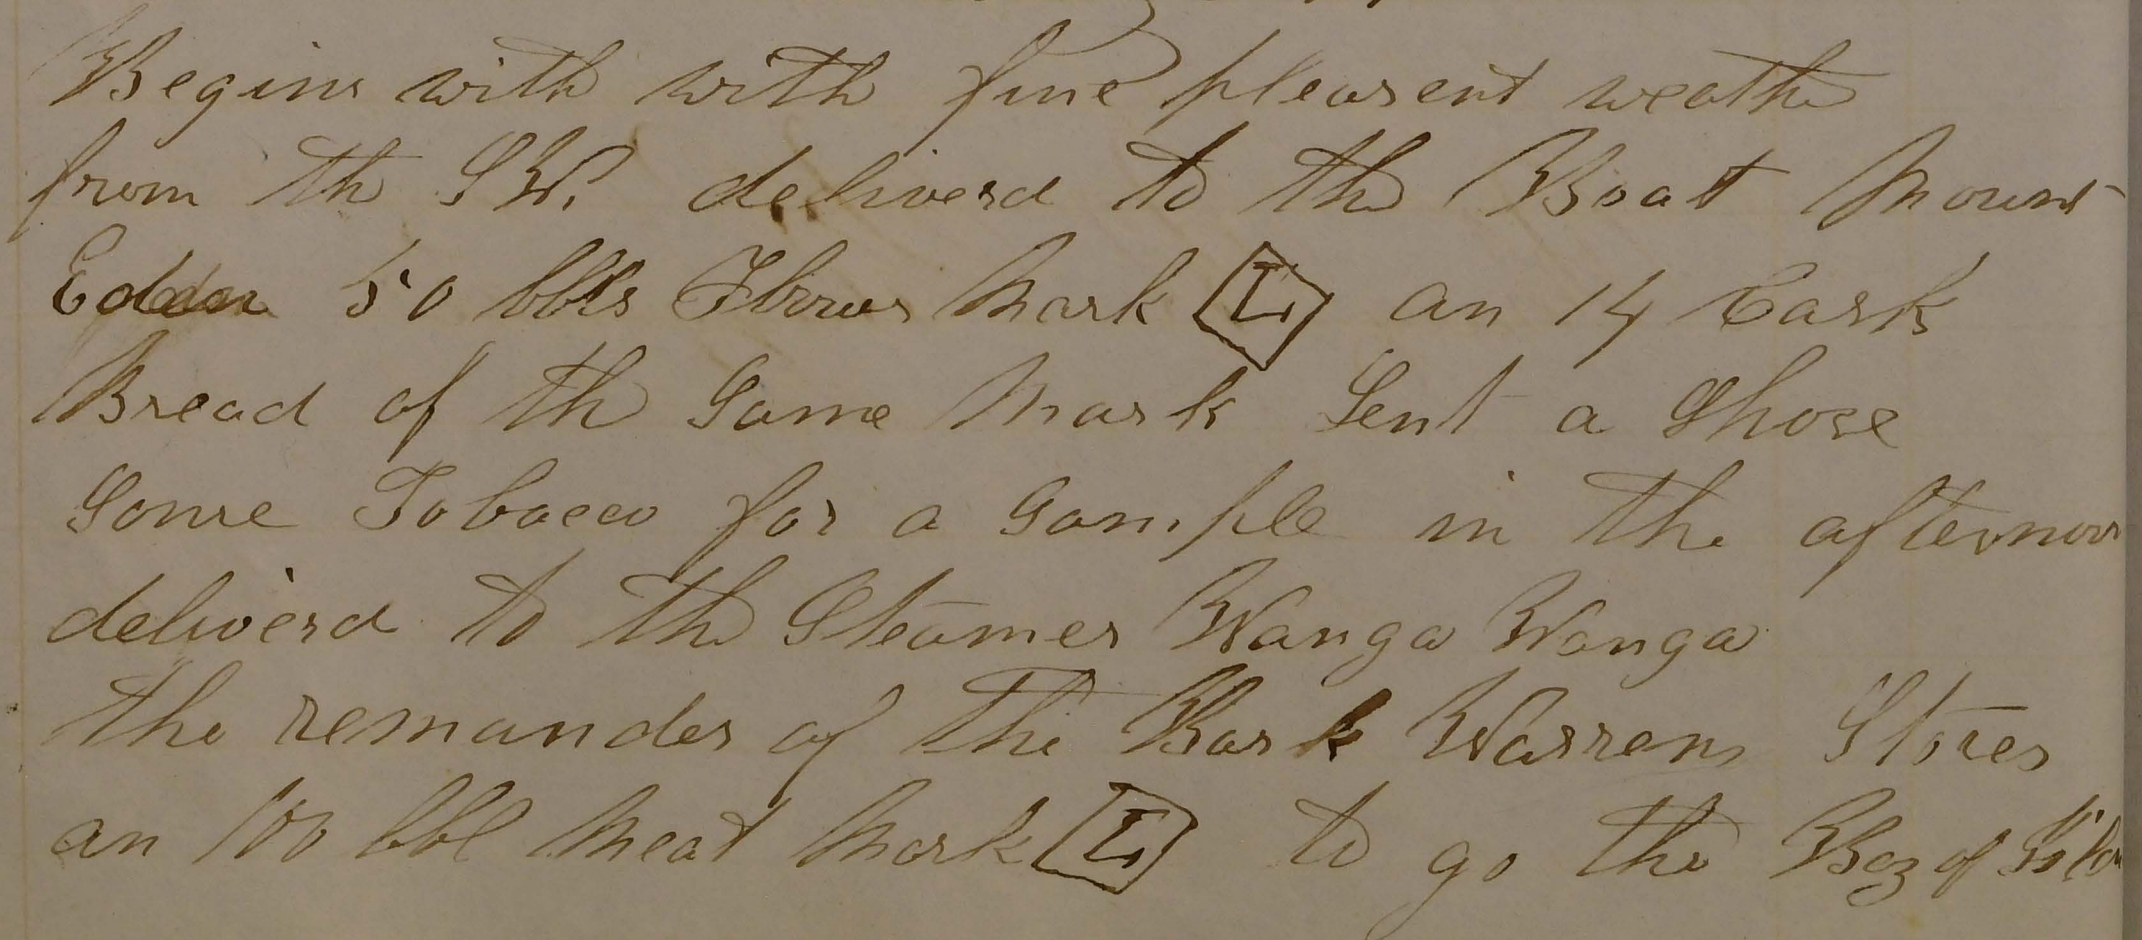 Begins with with fine pleasent weathe
from the S W. deliverd to the Boat Mount
Eden 50 bbls Flour Mark L an 14 Cask
Bread of the Same Mark Sent a Shore
Some Tobacco for a Sample in the afternoon
deliverd to the Steamer Wanga Wanga
the remander of the Bark Warrens Stores
an 100 bbl Meat Mark L to go the Bay of